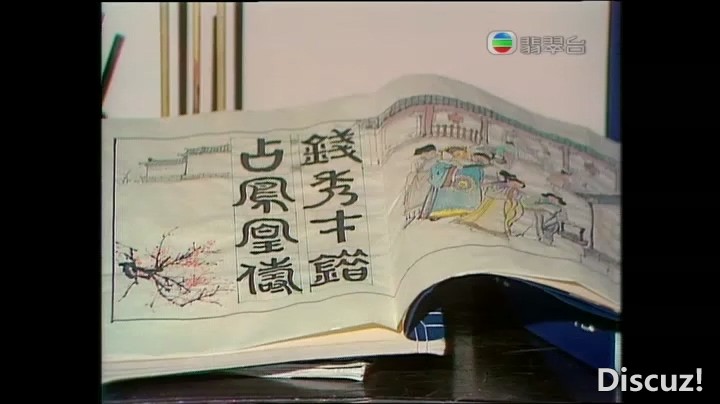 翡翠台
錢秀才錯
占鳳凰儔
Discuz!